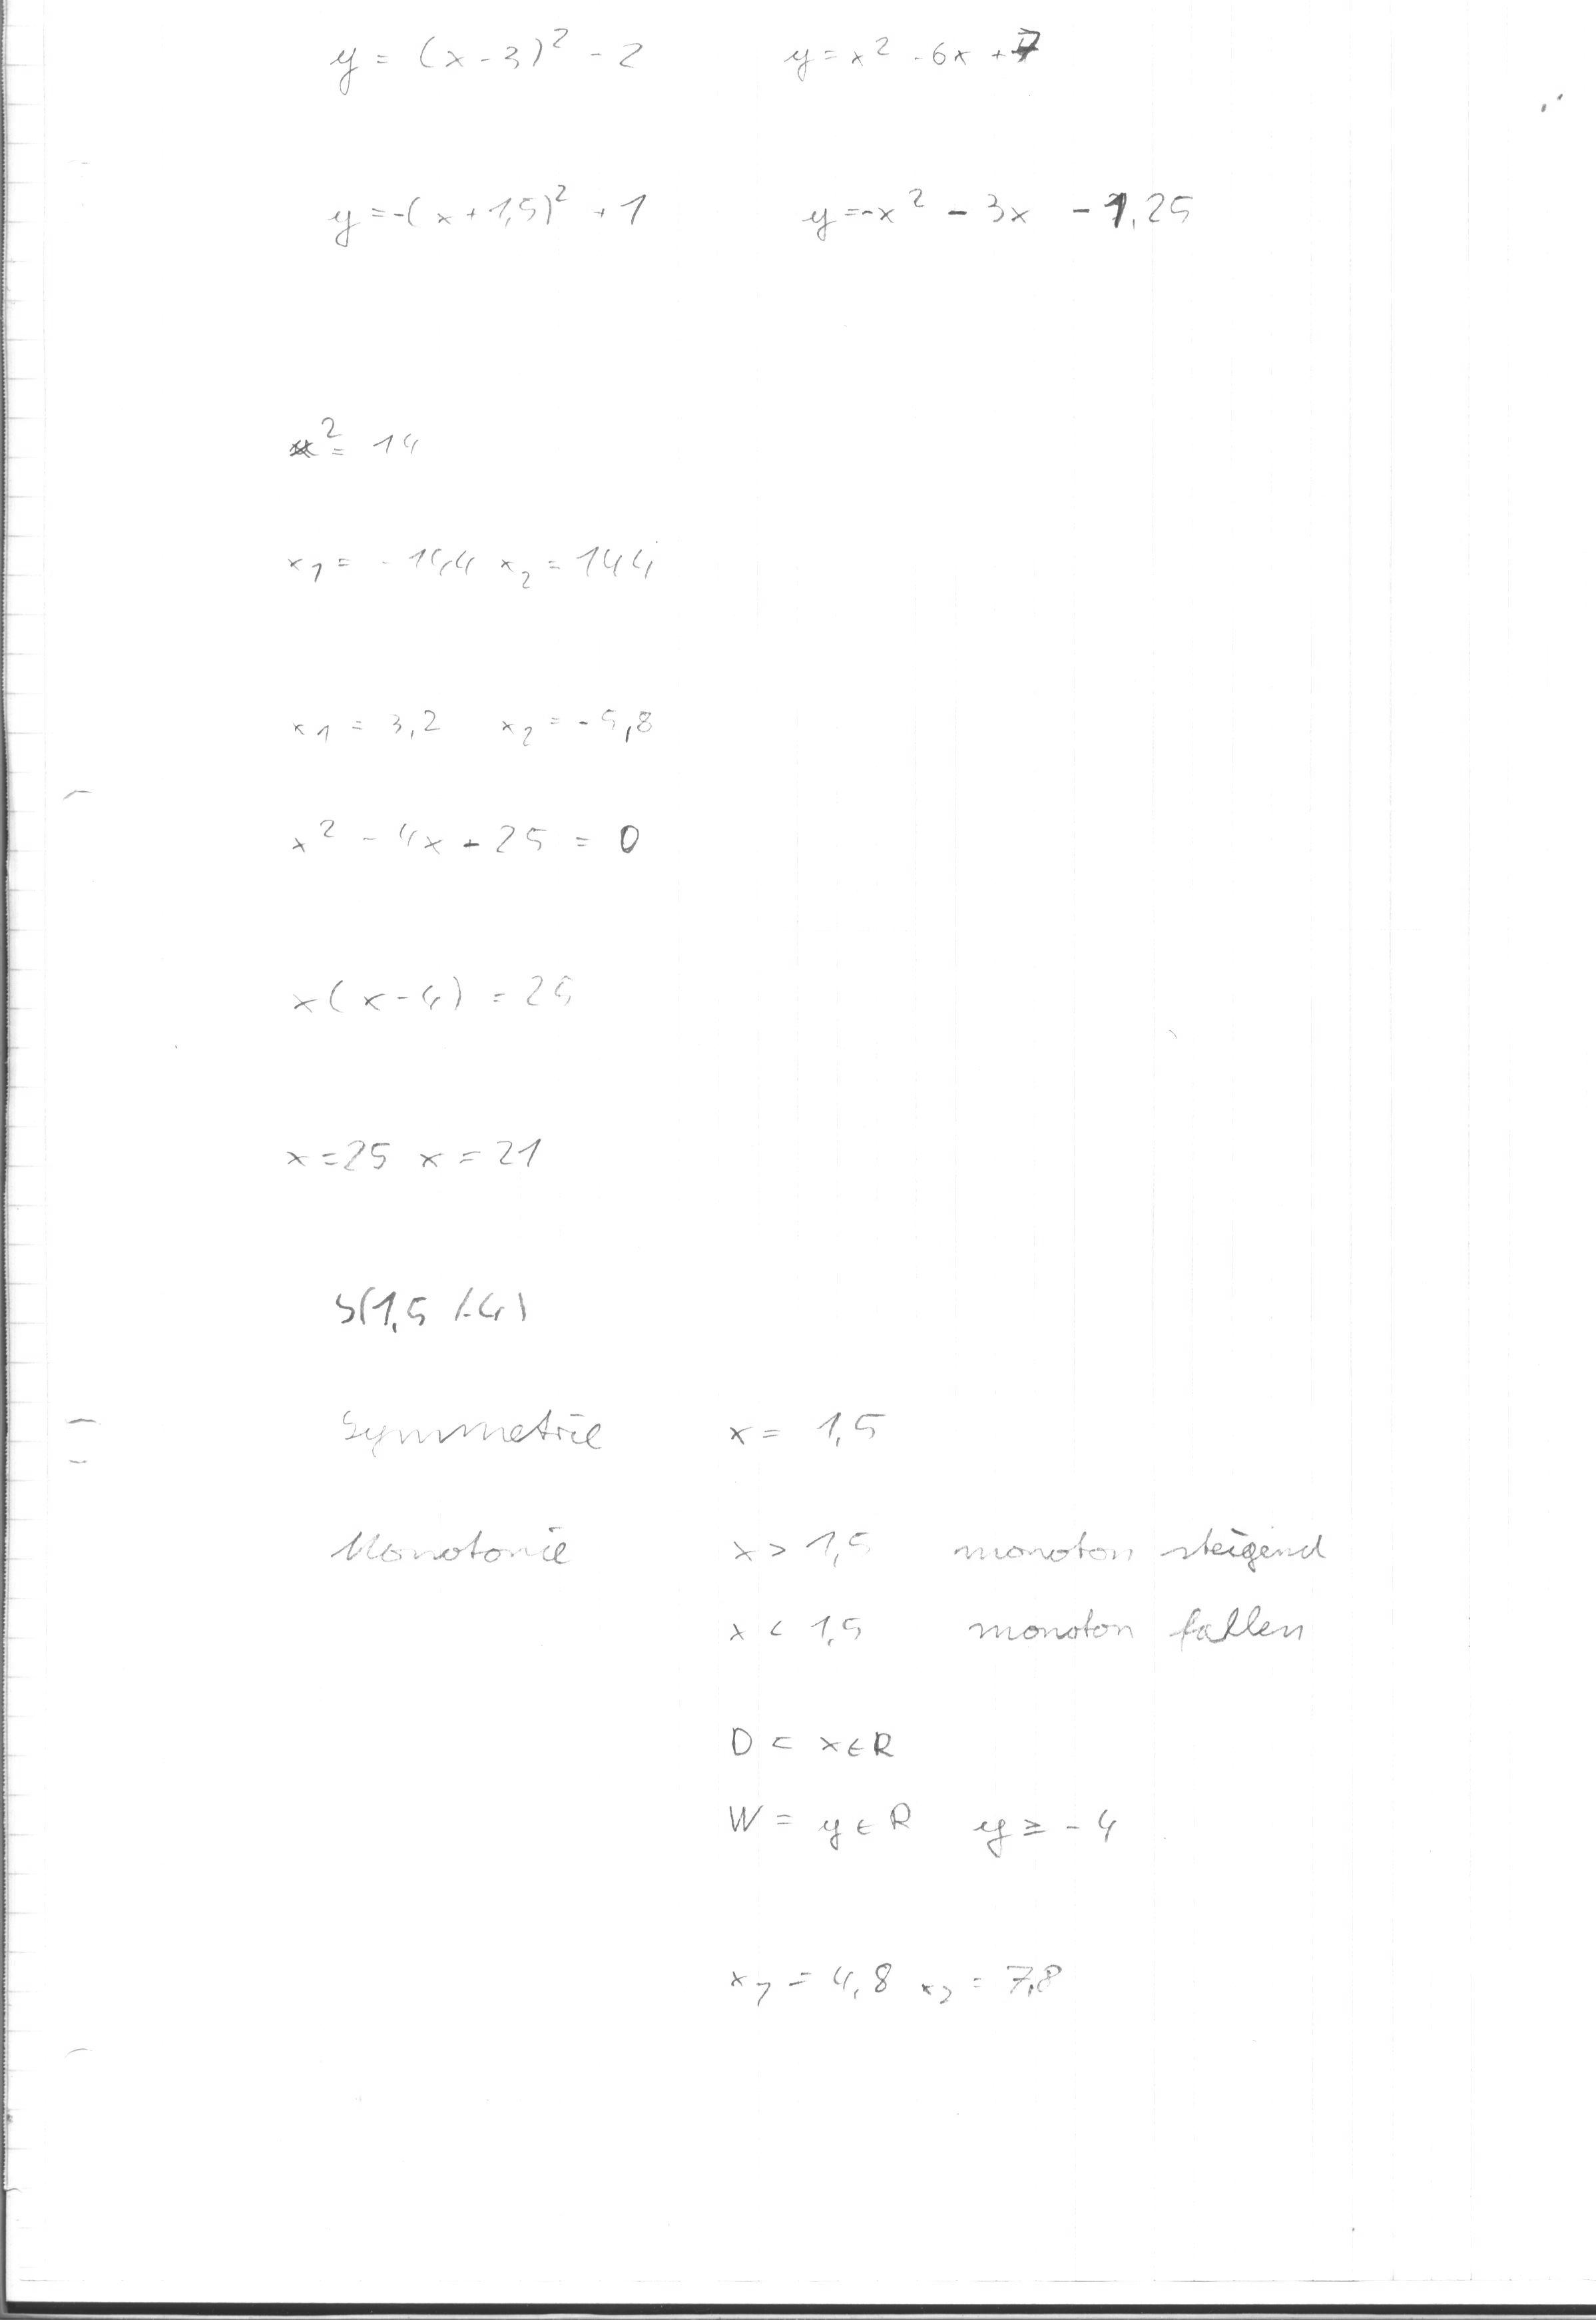 y = (x - 3)² - 2 y = x² - 6x + 7
y = -(x + 1,5)² + 1 y = -x² - 3x - 1,25
x² = 14
x₁ = - 14,4 x₂ = 144
x₁ = 3,2 x₂ = - 5,8
x² - 4x - 25 = 0
x(x - 4) = 25
x = 25 x = 21
S(1,5 / -4)
Symmetrie x = 1,5
Monotonie x > 1,5 monoton steigend
x < 1,5 monoton fallen
D = x ∈ R
W = y ∈ R y ≥ - 4
x₁ = 4,8 x₂ = 7,8